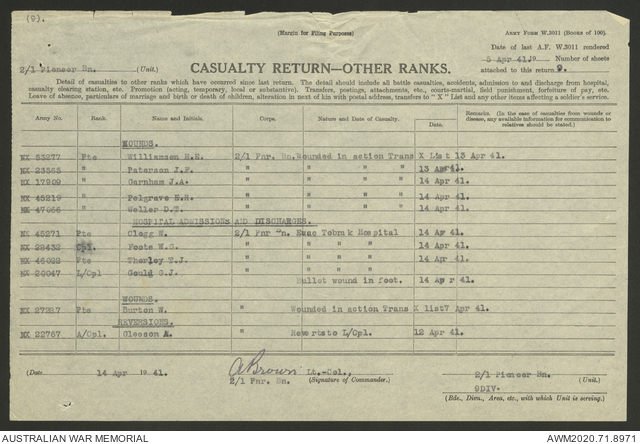 (9).
(Margin for Filing Purposes)
ARMY FORM W.3011 (BOOKS OF 100).
Date of last A.F. W.3011 rendered
5 Apr 41.19 Number of sheets
2/1 Pioneer Bn. (Unit.) CASUALTY RETURN—OTHER RANKS. attached to this return 9.
Detail of casualties to other ranks which have occurred since last return. The detail should include all battle casualties, accidents, admission to and discharge from hospital,
casualty clearing station, etc. Promotion (acting, temporary, local or substantive). Transfers, postings, attachments, etc., courts-martial, field punishment, forfeiture of pay, etc.
Leave of absence, particulars of marriage or birth or death of children, alteration in next of kin with postal address, transfers to "X" List and any other items affecting a soldier's service.
Army No. Rank. Name and Initials. Corps. Nature and Date of Casualty. Date. Remarks. (In the case of casualties from wounds or disease, any available information for communication to relatives should be stated.)
WOUNDS.
NX 53277 Pte Williamsen H.E. 2/1 Pnr. Bn. Wounded in action Trans X List 13 Apr 41.
NX 23565 " Paterson J.F. " " " " 13 Apr 41.
NX 17909 " Garnham J.A. " " " " 14 Apr 41.
NX 45219 " Pelgrave H.R. " " " " 14 Apr 41.
NX 47066 " Weller D.T. " " " " 14 Apr 41.
HOSPITAL ADMISSIONS AND DISCHARGES.
NX 45271 Pte Clegg W. 2/1 Pnr Bn. Evac Tobruk Hospital 14 Apr 41.
NX 28432 Cpl. Foote W.G. " " " " 14 Apr 41.
NX 46022 Pte Thorley T.J. " " " " 14 Apr 41.
NX 20047 L/Cpl Gould G.J. " " " "
Bullet wound in foot. 14 Apr 41.
WOUNDS.
NX 27217 Pte Burton W. " Wounded in action Trans X list 7 Apr 41.
REVERSIONS.
NX 22767 A/Cpl. Gleeson A. " Reverts to L/Cpl. 12 Apr 41.
(Date 14 Apr 1941. A Brown Lt.-Col., 2/1 Pioneer Bn.
2/1 Pnr. Bn. (Signature of Commander.) (Unit.)
9DIV.
(Bde., Divn., Area, etc., with which Unit is serving.)
AUSTRALIAN WAR MEMORIAL AWM2020.71.8971